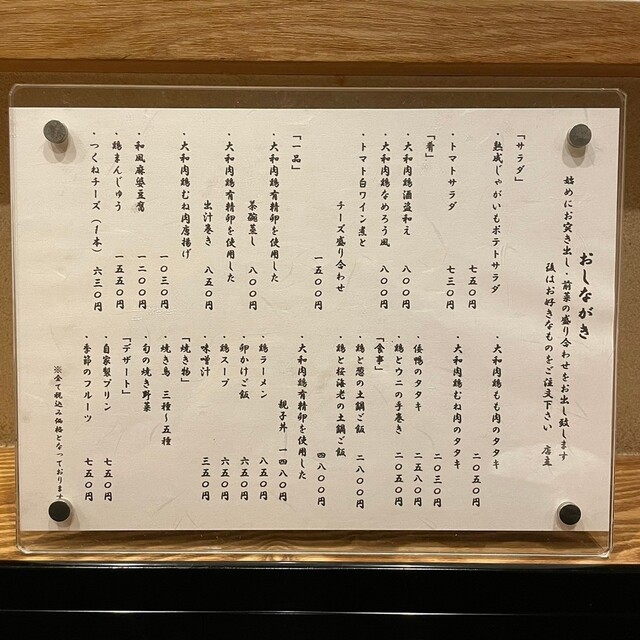 おしながき
始めにお突き出し・前菜の盛り合わせをお出し致します
後はお好きなものをご注文下さい 店主
「サラダ」
・熟成じゃがいもポテトサラダ
七五〇円
・トマトサラダ 七三〇円
「肴」
・大和肉鶏酒盗和え 八〇〇円
・大和肉鶏なめろう風 八〇〇円
・トマト白ワイン煮と
チーズ盛り合わせ
一五〇〇円
「一品」
・大和肉鶏有精卵を使用した
茶碗蒸し 八〇〇円
・大和肉鶏有精卵を使用した
出汁巻き 八五〇円
・大和肉鶏むね肉唐揚げ
一〇三〇円
・和風麻婆豆腐 一二〇〇円
・鶏まんじゅう 一五五〇円
・つくねチーズ（1本） 六三〇円
・大和肉鶏もも肉のタタキ
二〇五〇円
・大和肉鶏むね肉のタタキ
二〇三〇円
・倭鴨のタタキ 二五八〇円
・鶏とウニの手巻き 二〇五〇円
「食事」
・鶏と葱の土鍋ご飯 二八〇〇円
・鶏と桜海老の土鍋ご飯
四八〇〇円
・大和肉鶏有精卵を使用した
親子丼 一四八〇円
・鶏ラーメン 八五〇円
・卵かけご飯 六五〇円
・鶏スープ 六五〇円
・味噌汁 三五〇円
「焼き物」
・焼き鳥 三種〜五種
・旬の焼き野菜
「デザート」
・自家製プリン 七五〇円
・季節のフルーツ 七五〇円
※全て税込み価格となっております